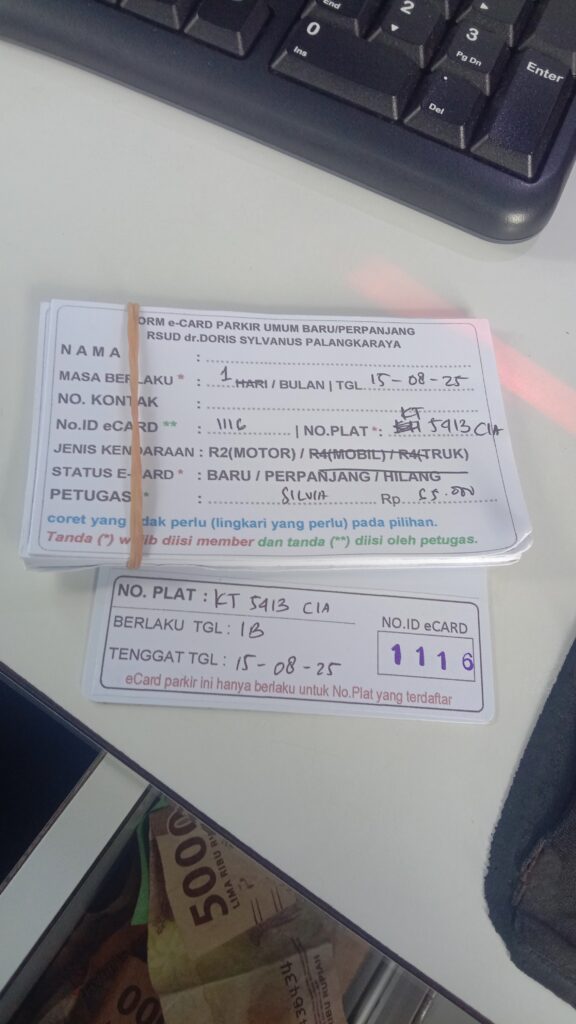 End
2
0
Ins
3
Pg Dn
Enter
.
Del
ORM e-CARD PARKIR UMUM BARU/PERPANJANG
RSUD dr.DORIS SYLVANUS PALANGKARAYA
NAMA :
MASA BERLAKU * : 1 HARI / BULAN | TGL 15-08-25
NO. KONTAK :
No.ID eCARD ** : 1116 | NO.PLAT *: KT 5413 CIA
JENIS KENDARAAN : R2(MOTOR) / R4(MOBIL) / R4(TRUK)
STATUS E-CARD * : BARU / PERPANJANG / HILANG
PETUGAS * : SILVIA Rp 55.000
coret yang dak perlu (lingkari yang perlu) pada pilihan.
Tanda (*) w ib diisi member dan tanda (**) diisi oleh petugas.
NO. PLAT : KT 5413 CIA
BERLAKU TGL : 1B
TENGGAT TGL : 15-08-25
NO.ID eCARD
1116
eCard parkir ini hanya berlaku untuk No.Plat yang terdaftar
5000
LIMA RIBU RU